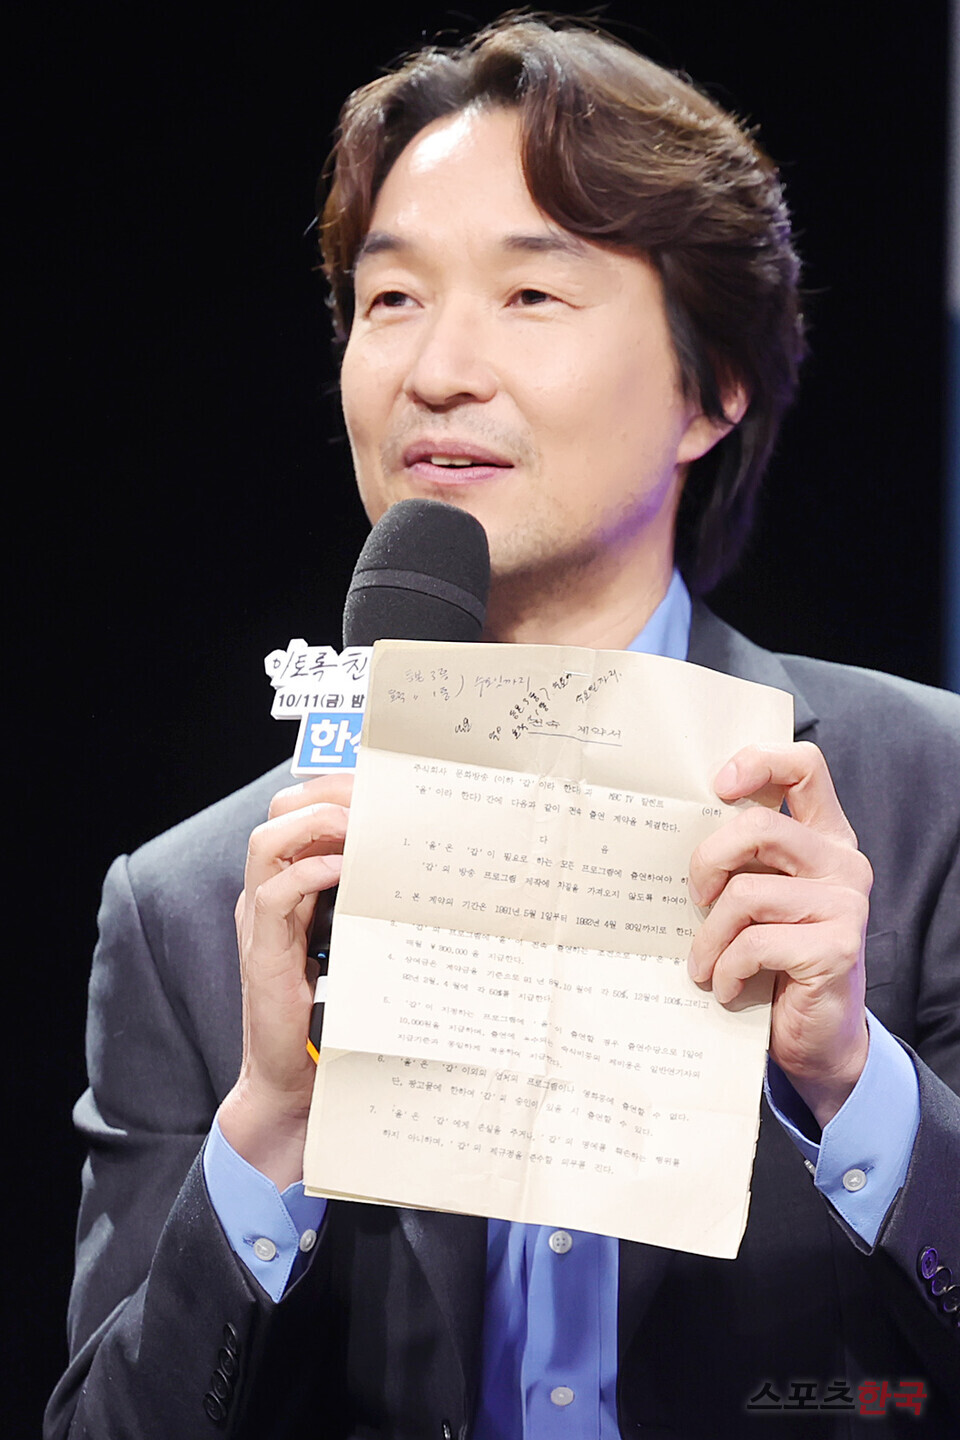 이토록 친
10/11(금) 밤
한
전속 계약서
주식회사 문화방송 (이하 '갑' 이라 한다) 과 MBC TV 탤런트 (이하
"을" 이라 한다) 간에 다음과 같이 전속 출연 계약을 체결한다.
다 음
1. '을' 은 '갑' 이 필요로 하는 모든 프로그램에 출연하여야 하
'갑' 의 방송 프로그램 제작에 차질을 가져오지 않도록 하여야
2. 본 계약의 기간은 1991년 5월 1일부터 1992년 4월 30일까지로 한다.
3. '갑' 의 프로그램에 '을' 이 전속 출연하는 조건으로 '갑' 은 '을'
매월 ₩300,000 을 지급한다.
4. 상여금은 계약금을 기준으로 91 년 8월,10 월에 각 50%, 12월에 100%,그리고
92년 2월, 4 월에 각 50%를 지급한다.
5. '갑' 이 지정하는 프로그램에 '을' 이 출연할 경우 출연수당으로 1일에
10,000원을 지급하며, 출연에 제비용은 일반연기자의
지급기준과 동일하게 적용하여 지급한다.
6. '을' 은 '갑' 이외의 업체의 프로그램이나 영화등에 출연할 수 없다.
단, 광고물에 한하여 '갑' 의 승인이 있을 시 출연할 수 있다.
7. '을' 은 '갑' 에게 손실을 주거나, '갑' 의 명예를 훼손하는 행위를
하지 아니하며, '갑' 의 제규정을 준수할 의무를 진다.
스포츠한국